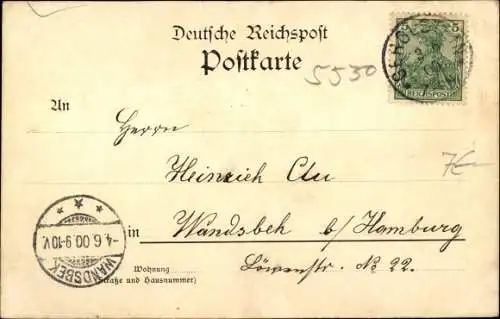 Deutsche Reichspost
Postkarte
5530
5
REICHSPOST
An
Herrn
Heinrich
7€
in Wandsbek b/ Hamburg
-4.6.00.9-10V.
WANDSBEK
Wohnung
(Straße und Hausnummer)
Löwenstr. No 22.